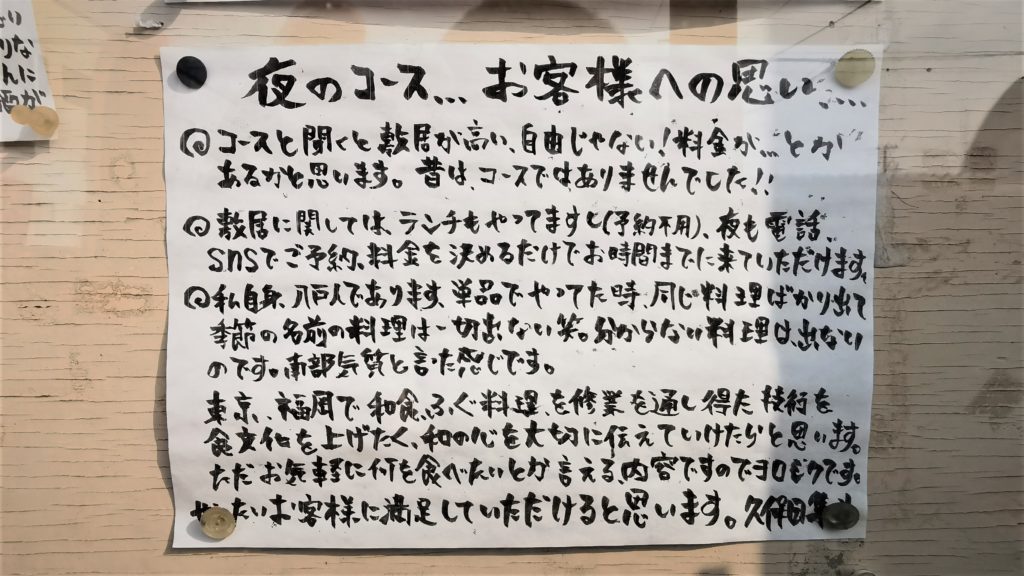 夜のコース… お客様への思い……
◎コースと聞くと敷居が高い、自由じゃない!料金が…とか
あるかと思います。昔は、コースではありませんでした!!
◎敷居に関しては、ランチもやってますし(予約不用)、夜も電話、
SNSでご予約、料金を決めるだけでお時間までに来ていただけます。
◎私自身、八戸人であります、単品でやってた時、同じ料理ばかり出て
季節の名前の料理は一切出ない笑。分からない料理は、出ない
のです。南部気質と言った感じです。
東京、福岡で和食、ふぐ料理、を修業を通し得た技術を
食文化を上げたく、和の心を大切に伝えていけたらと思います。
ただお気軽に何を食べたいとか言える内容ですのでヨロしクです。
たいお客様に満足していただけると思います。久保田
りな
んに
酒が